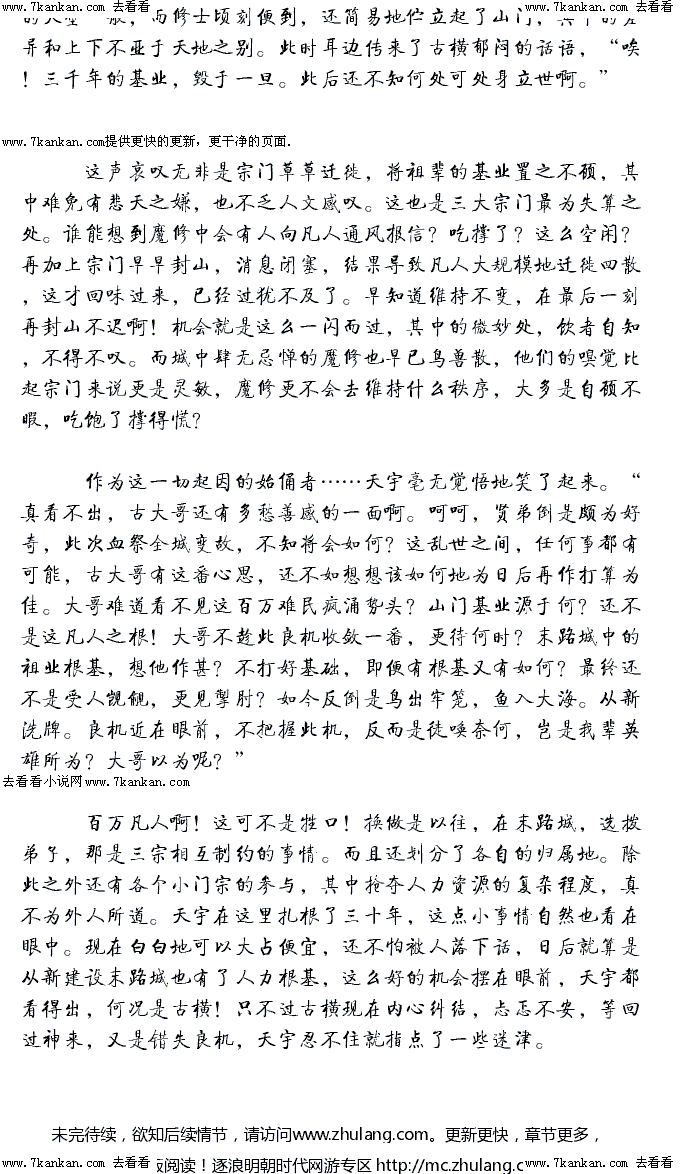 www.7kankan.com 去看看 www.7kankan.com 去看看 www.7kankan.com 去看看 www.7kankan.com 去看看
异和上下不亚于天地之别。此时耳边传来了古横郁闷的话语，“唉
！三千年的基业，毁于一旦。此后还不知何处可处身立世啊。”
www.7kankan.com提供更快的更新，更干净的页面.
这声哀叹无非是宗门草草迁徙，将祖辈的基业置之不顾，其
中难免有悲天之嫌，也不乏人文感叹。这也是三大宗门最为失算之
处。谁能想到魔修中会有人向凡人通风报信？吃撑了？这么空闲？
再加上宗门早早封山，消息闭塞，结果导致凡人大规模地迁徙四散
，这才回味过来，已经过犹不及了。早知道维持不变，在最后一刻
再封山不迟啊！机会就是这么一闪而过，其中的微妙处，饮者自知
，不得不叹。而城中肆无忌惮的魔修也早已鸟兽散，他们的嗅觉比
起宗门来说更是灵敏，魔修更不会去维持什么秩序，大多是自顾不
暇，吃饱了撑得慌？
作为这一切起因的始俑者……天宇毫无觉悟地笑了起来。“
真看不出，古大哥还有多愁善感的一面啊。呵呵，贤弟倒是颇为好
奇，此次血祭全城变故，不知将会如何？这乱世之间，任何事都有
可能，古大哥有这番心思，还不如想想该如何地为日后再作打算为
佳。大哥难道看不见这百万难民疯涌势头？山门基业源于何？还不
是这凡人之根！大哥不趁此良机收敛一番，更待何时？末路城中的
祖业根基，想他作甚？不打好基础，即便有根基又有如何？最终还
不是受人觊觎，更见掣肘？如今反倒是鸟出牢笼，鱼入大海。从新
洗牌。良机近在眼前，不把握此机，反而是徒唤奈何，岂是我辈英
雄所为？大哥以为呢？”
去看看小说网www.7kankan.com
百万凡人啊！这可不是牲口！换做是以往，在末路城，选拨
弟子，那是三宗相互制约的事情。而且还划分了各自的归属地。除
此之外还有各个小门宗的参与，其中抢夺人力资源的复杂程度，真
不为外人所道。天宇在这里扎根了三十年，这点小事情自然也看在
眼中。现在白白地可以大占便宜，还不怕被人落下话，日后就算是
从新建设末路城也有了人力根基，这么好的机会摆在眼前，天宇都
看得出，何况是古横！只不过古横现在内心纠结，忐忑不安，等回
过神来，又是错失良机，天宇忍不住就指点了一些迷津。
未完待续，欲知后续情节，请访问www.zhulang.com。更新更快，章节更多，
版阅读！逐浪明朝时代网游专区 http://mc.zhulang.com
www.7kankan.com 去看看 www.7kankan.com 去看看 www.7kankan.com 去看看 www.7kankan.com 去看看